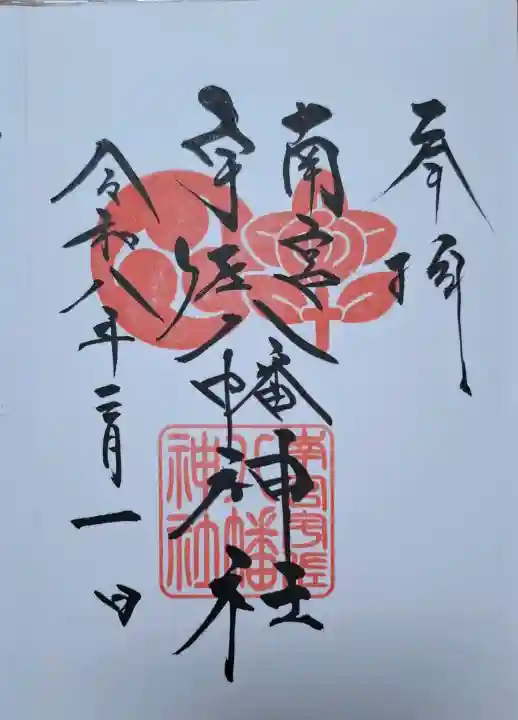 奉拝
南宮
宇佐八幡神社
令和八年二月一日
南宮宇佐
八幡
神社